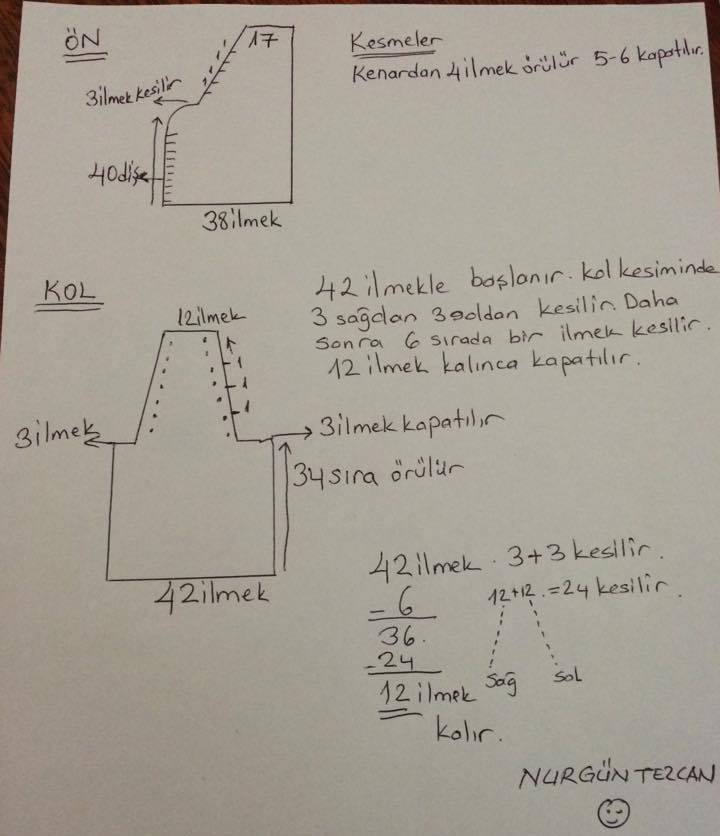 ÖN
17
3 ilmek kesilir
40 diş
38 ilmek
Kesmeler
Kenardan 4 ilmek örülür 5-6 kapatılır.
KOL
12 ilmek
1
1
1
3 ilmek
3 ilmek kapatılır
34 sıra örülür
42 ilmek
42 ilmekle başlanır. kol kesiminde
3 sağdan 3 soldan kesilir. Daha
sonra 6 sırada bir ilmek kesilir.
12 ilmek kalınca kapatılır.
42 ilmek . 3+3 kesilir.
- 6 12+12 .=24 kesilir.
36.
-24
12 ilmek sağ sol
kalır.
NURGÜN TEZCAN